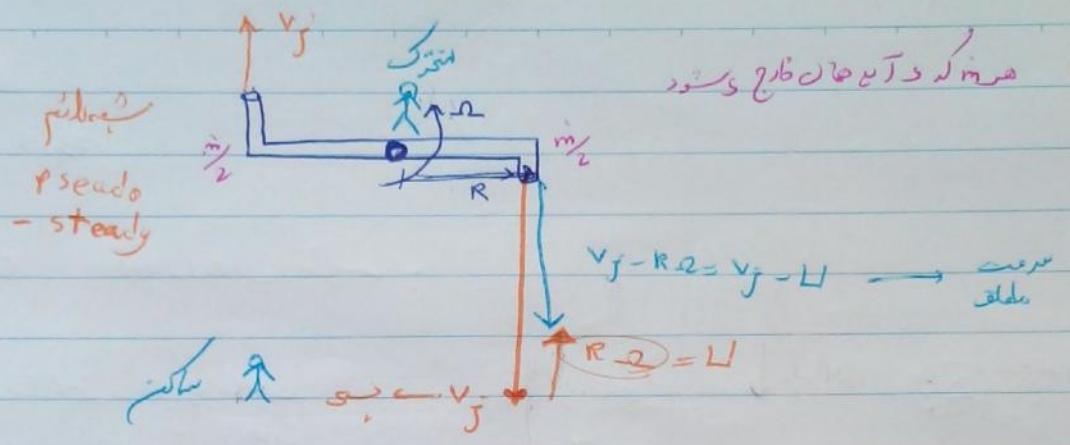 Vj
متحرک
هر ṁ که در آید همان خارج میشود
Ω
شبه دائم
ṁ/2
ṁ/2
pseado
- steady
R
Vj - RΩ = Vj - U → سرعت
مطلق
RΩ = U
ساکن
Vj نسبی